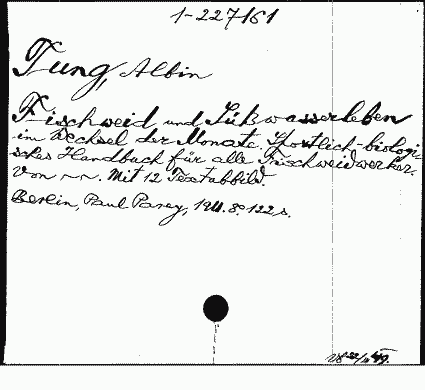 1-227161
Jung, Albin
Fischweid und Süßwasserleben
im Wechsel der Monate. Sportlich-biologi-
sches Handbuch für alle Fischweidwerker.
Von ~~. Mit 12 Textabbild.
Berlin, Paul Parey, 1941. 8°. 122 s.